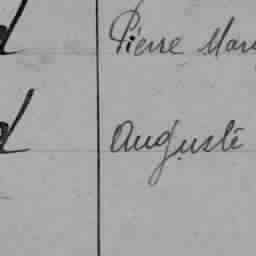 d Pierre Mar
d Auguste